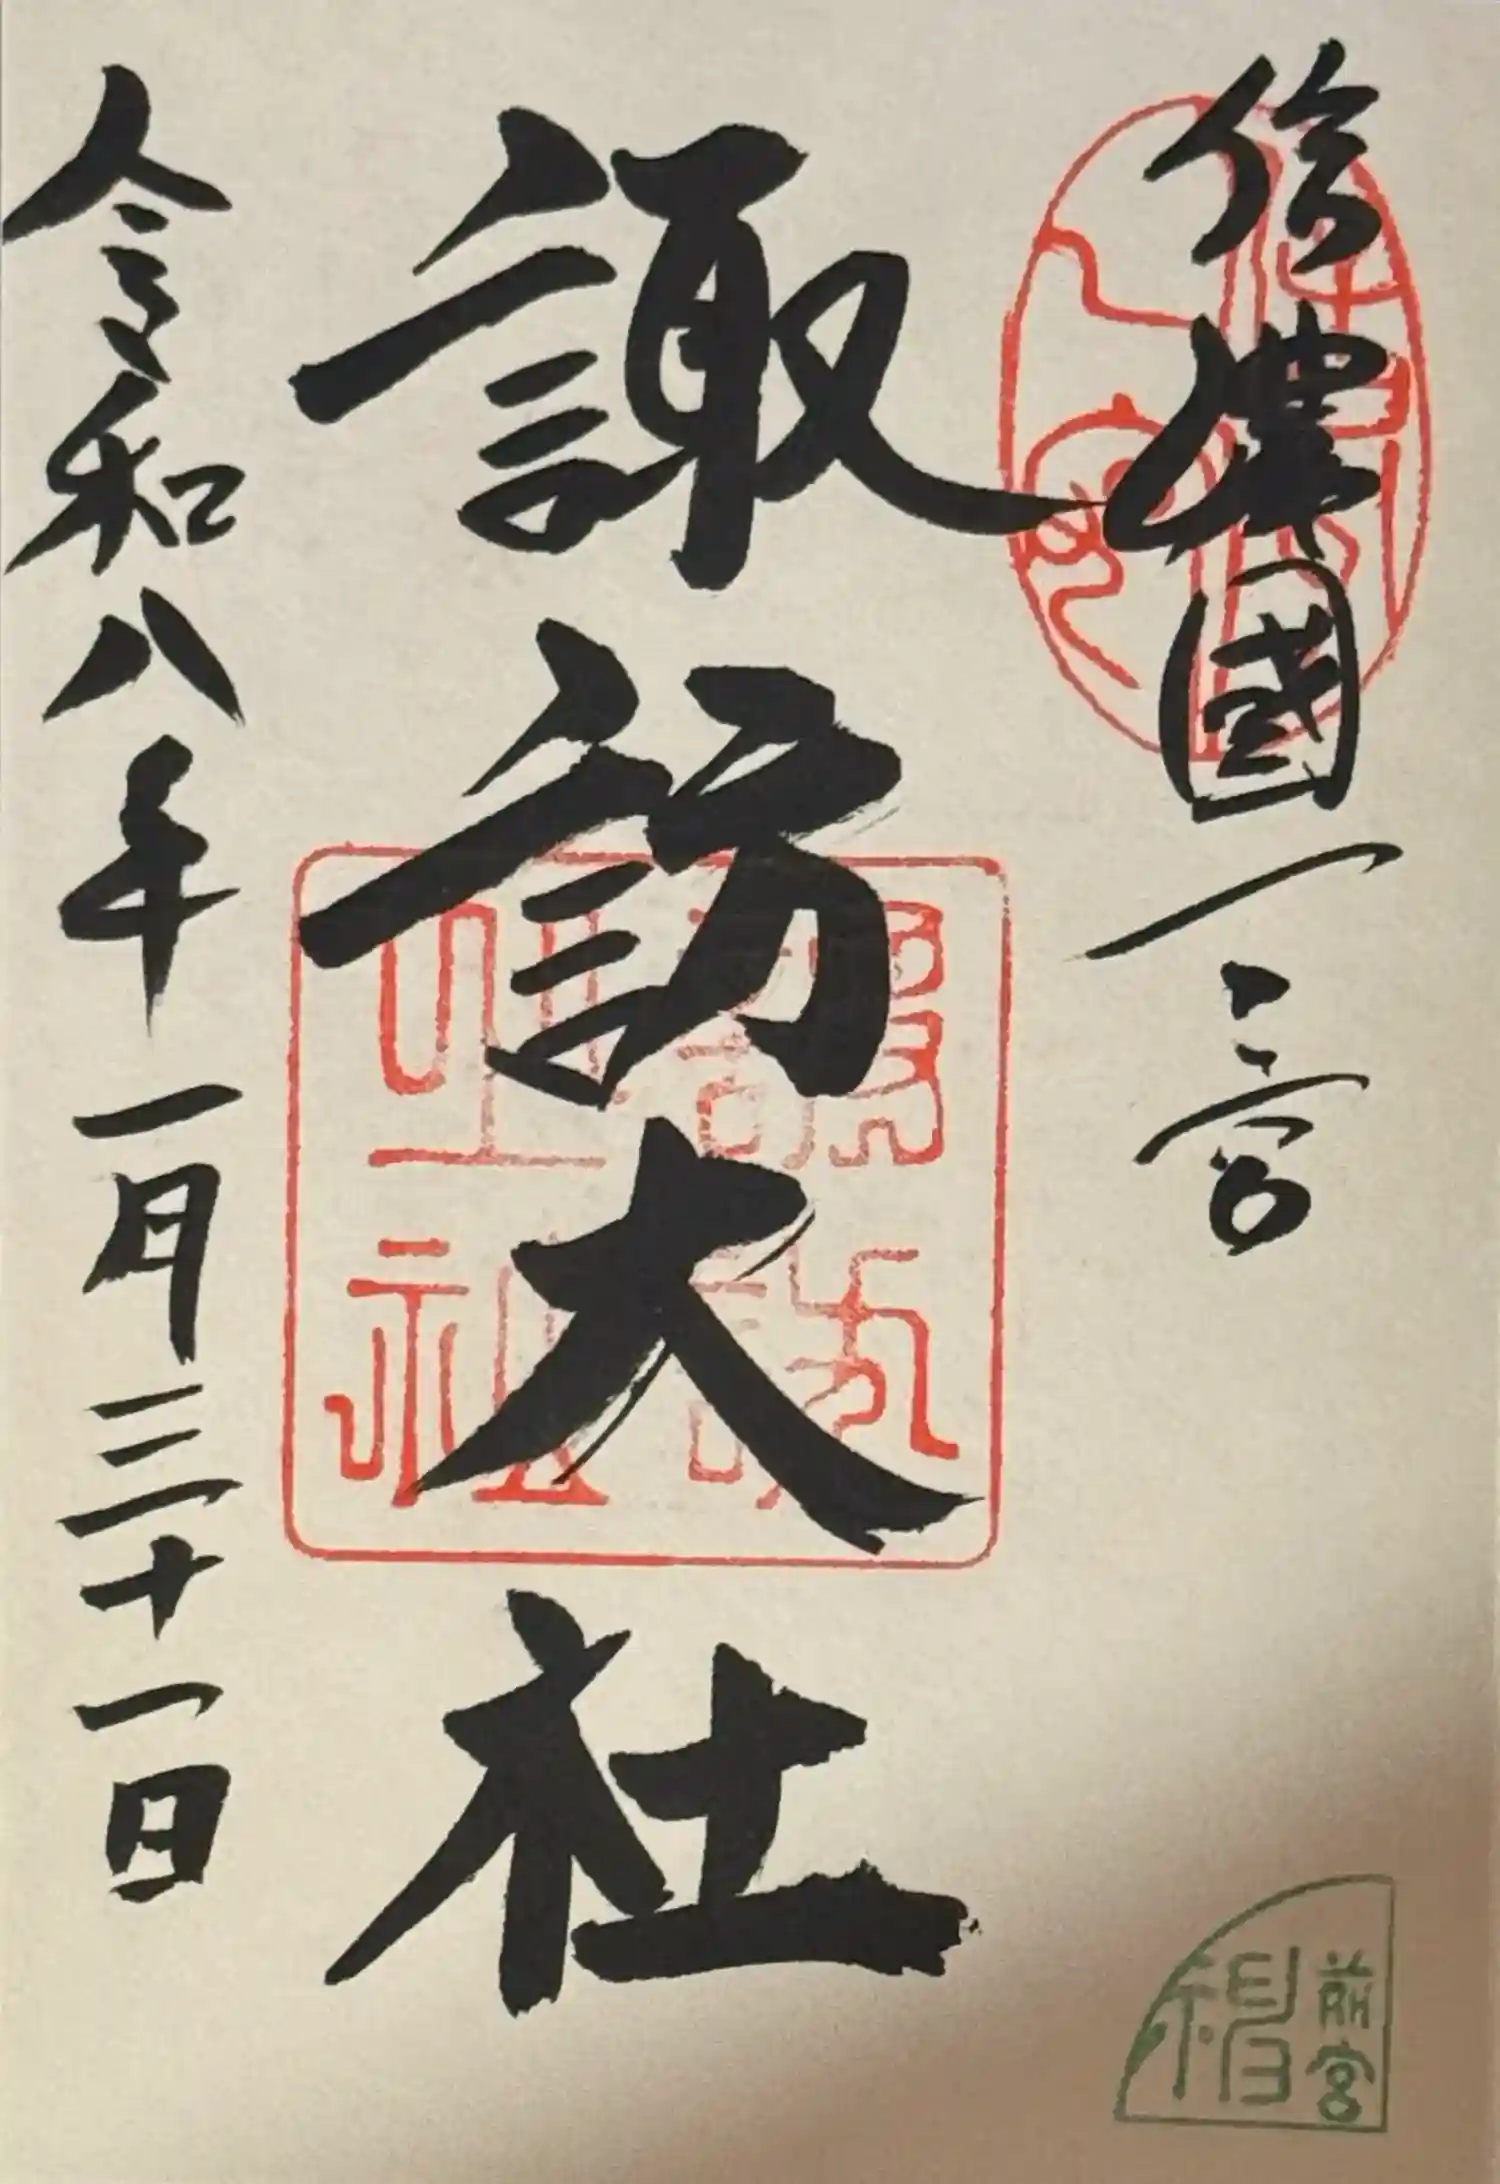 信濃國一之宮
諏訪大社
令和八年一月三十一日
諏訪大社
前宮